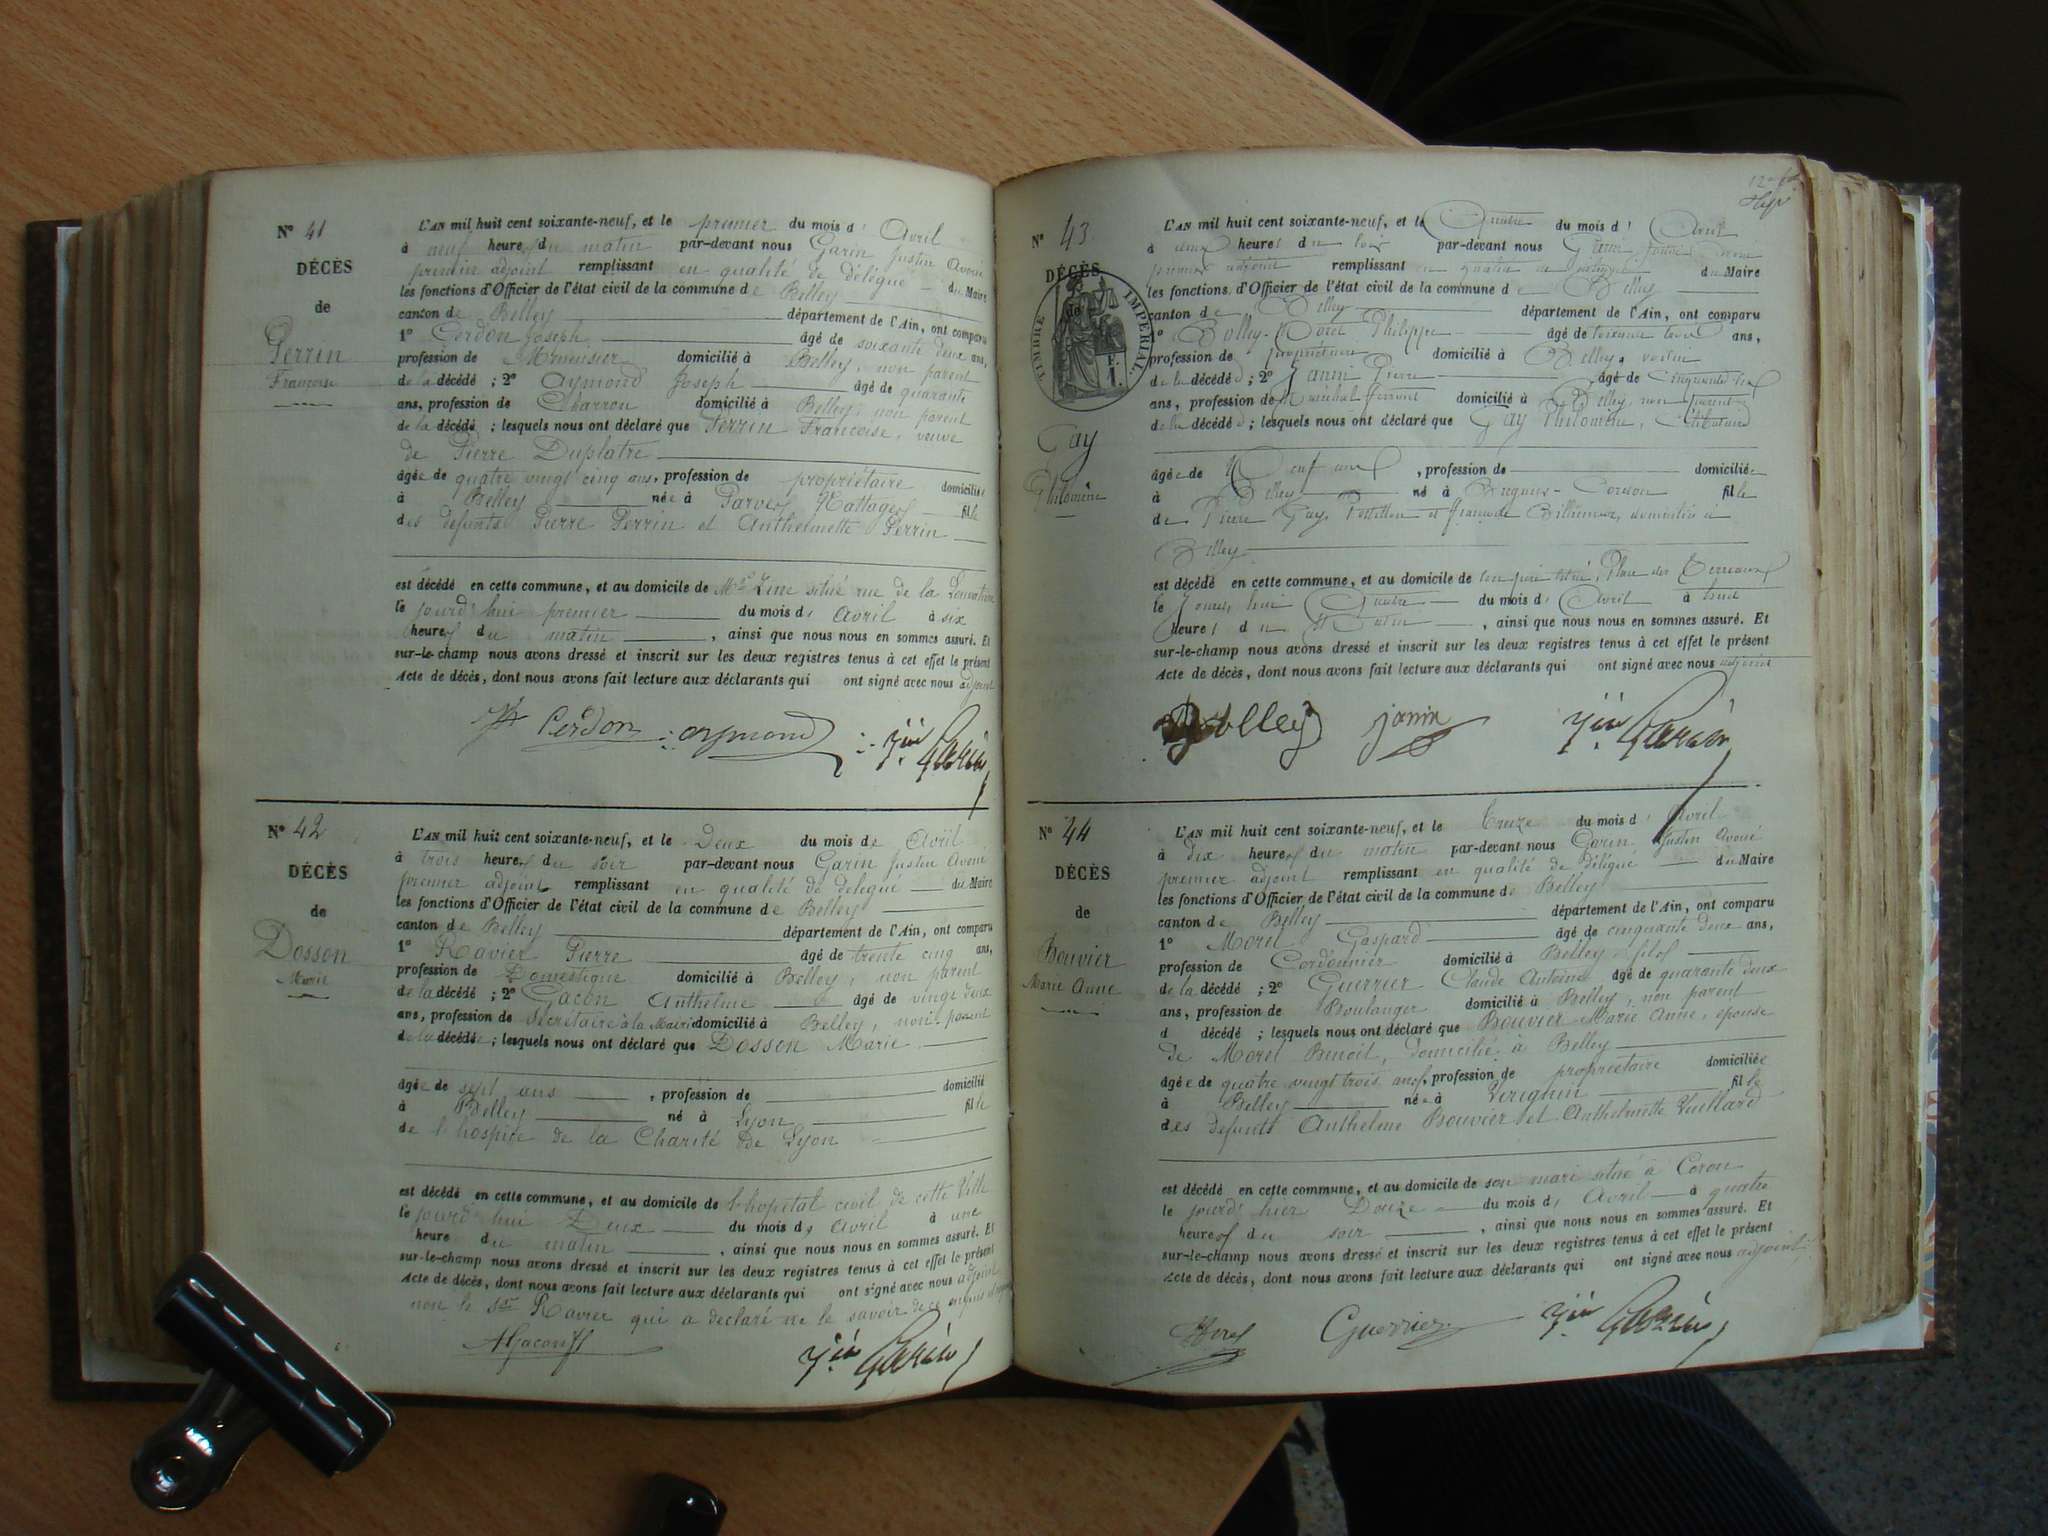 N° 41
DÉCÈS
de
Perrin
Francoise
L'AN mil huit cent soixante-neuf, et le premier du mois d' Avril
à neuf heures du matin par-devant nous Garin Justin Avoué
premier adjoint remplissant en qualité de délégué du Maire
les fonctions d'Officier de l'état civil de la commune de Belley
canton de Belley département de l'Ain, ont comparu
1° Cerdon Joseph âgé de soixante deux ans,
profession de Menuisier domicilié à Belley, non parent
de la décédé ; 2° Aymond Joseph âgé de quarante
ans, profession de Charron domicilié à Belley, non parent
de la décédé ; lesquels nous ont déclaré que Perrin Francoise, veuve
de Pierre Duplatre
âgée de quatre vingt cinq ans, profession de propriétaire domiciliée
à Belley née à Parves Nattages fille
des defunts Pierre Perrin et Anthelmette Perrin
est décédé en cette commune, et au domicile de situé rue de la
le jourd'hui premier du mois d' Avril à six
heures du matin , ainsi que nous nous en sommes assuré. Et
sur-le-champ nous avons dressé et inscrit sur les deux registres tenus à cet effet le présent
Acte de décès, dont nous avons fait lecture aux déclarants qui ont signé avec nous adjoint
Cerdon aymond Jin Garin
N° 42
DÉCÈS
de
Dosson
Marie
L'AN mil huit cent soixante-neuf, et le Deux du mois de Avril
à trois heures du soir par-devant nous Garin Justin Avoué
premier adjoint remplissant en qualité de délégué du Maire
les fonctions d'Officier de l'état civil de la commune de Belley
canton de Belley département de l'Ain, ont comparu
1° Ravier Pierre âgé de trente cinq ans,
profession de Domestique domicilié à Belley, non parent
de la décédé ; 2° Gacon Anthelme âgé de vingt deux
ans, profession de Secrétaire à la Mairie domicilié à Belley, non parent
de la décédé ; lesquels nous ont déclaré que Dosson Marie
âgée de sept ans , profession de domicilié
à Belley né à Lyon fille
de l'hospice de la Charité de Lyon
est décédé en cette commune, et au domicile de l'hopital civil de cette Ville
le jourd'hui Deux du mois de Avril à une
heure du matin , ainsi que nous nous en sommes assuré. Et
sur-le-champ nous avons dressé et inscrit sur les deux registres tenus à cet effet le présent
Acte de décès, dont nous avons fait lecture aux déclarants qui ont signé avec nous adjoint
non le Sieur Ravier qui a declaré ne le savoir de ce enquis
AGacon Jin Garin
N° 43
DÉCÈS
de
TIMBRE IMPÉRIAL.
Gay
Philomène
L'AN mil huit cent soixante-neuf, et le Quatre du mois d' Avril
à deux heures du soir par-devant nous Garin Justin Avoué
premier adjoint remplissant en qualité de délégué du Maire
les fonctions d'Officier de l'état civil de la commune de Belley
canton de Belley département de l'Ain, ont comparu
1° Bolley-Morel Philippe âgé de ans,
profession de propriétaire domicilié à Belley, voisin
de la décédé ; 2° Janin Pierre âgé de
ans, profession de Maréchal ferrant domicilié à Belley, non parent
de la décédé ; lesquels nous ont déclaré que Gay Philomène, Célibataire
âgée de Neuf ans , profession de domiciliée
à Belley né à fille
de Pierre Gay, Postillon et Françoise domiciliés à
Belley
est décédé en cette commune, et au domicile de son père situé, Place des Terreaux
le jourd'hui Quatre du mois d' Avril à huit
heures du Matin , ainsi que nous nous en sommes assuré. Et
sur-le-champ nous avons dressé et inscrit sur les deux registres tenus à cet effet le présent
Acte de décès, dont nous avons fait lecture aux déclarants qui ont signé avec nous adjoint
Bolley janin Jin Garin
N° 44
DÉCÈS
de
Bouvier
Marie Anne
L'AN mil huit cent soixante-neuf, et le Treize du mois d' Avril
à dix heures du matin par-devant nous Garin Justin Avoué
premier adjoint remplissant en qualité de délégué du Maire
les fonctions d'Officier de l'état civil de la commune de Belley
canton de Belley département de l'Ain, ont comparu
1° Morel Gaspard âgé de cinquante deux ans,
profession de Cordonnier domicilié à Belley, fils
de la décédé ; 2° Guerrier Claude Antoine âgé de quarante deux
ans, profession de Boulanger domicilié à Belley, non parent
d décédé ; lesquels nous ont déclaré que Bouvier Marie Anne, epouse
de Morel Benoit, domicilié à Belley
âgée de quatre vingt trois ans, profession de propriétaire domiciliée
à Belley née à Virignin fille
des defunts Anthelme Bouvier et Anthelmette Vuillard
est décédé en cette commune, et au domicile de son mari situé à Coron
le jourd'hier Douze du mois d' Avril à quatre
heures du soir , ainsi que nous nous en sommes assuré. Et
sur-le-champ nous avons dressé et inscrit sur les deux registres tenus à cet effet le présent
Acte de décès, dont nous avons fait lecture aux déclarants qui ont signé avec nous adjoint
Morel Guerrier Jin Garin